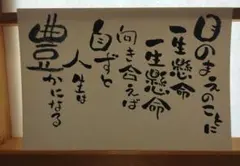 目のまえのことに
一生懸命
一生懸命
向き合えば
自ずと
人生は
豊かになる